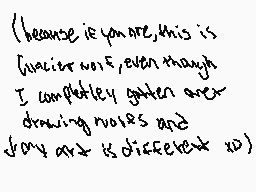 (because if you are, this is
Glacier wolf, even though
I completley gotten over
drawing wolfs and
my art is different xD)